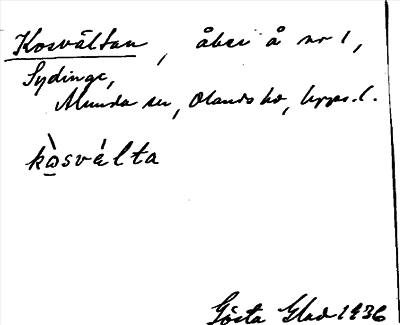 Kosvältan, åker å nr 1,
Sydinge,
Almunda sn, Olands hd, Upps. l.
kòsvélta
Gösta Glad 1936